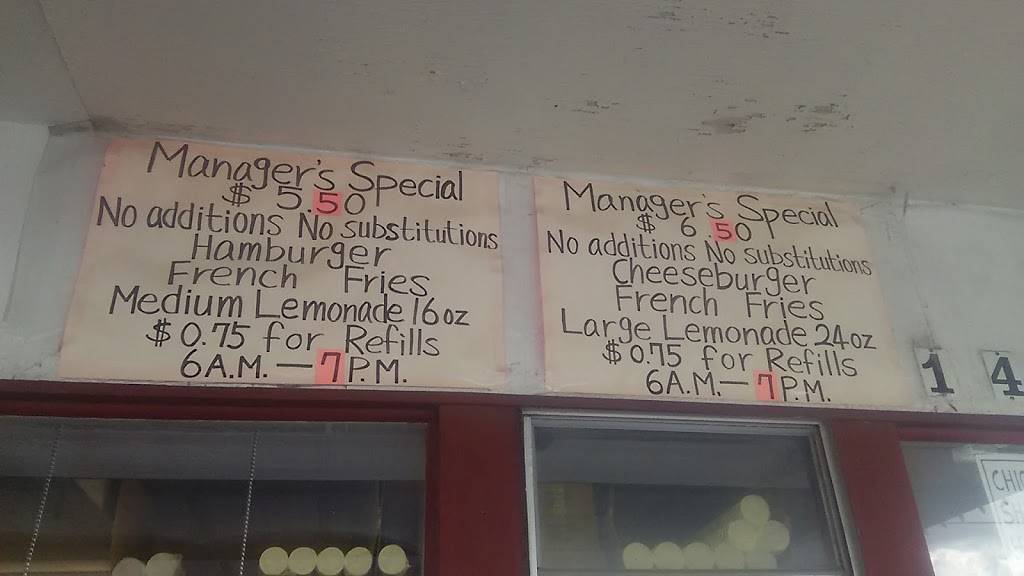 Manager's Special
$ 5.50
No additions No substitutions
Hamburger
French Fries
Medium Lemonade 16oz
$0.75 for Refills
6A.M. — 7P.M.
Manager's Special
$ 6 50
No additions No substitutions
Cheeseburger
French Fries
Large Lemonade 24oz
$0.75 for Refills
6A.M. — 7P.M.
1 4